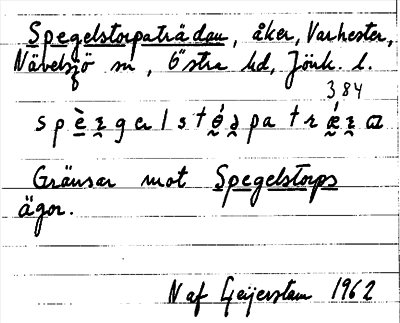 Spegelstorpaträdan, åker, Varhester,
Nävelsjö sn, Östra hd, Jönk. l.
384
Gränsar mot Spegelstorps
ägor.
N af Geijerstam 1962